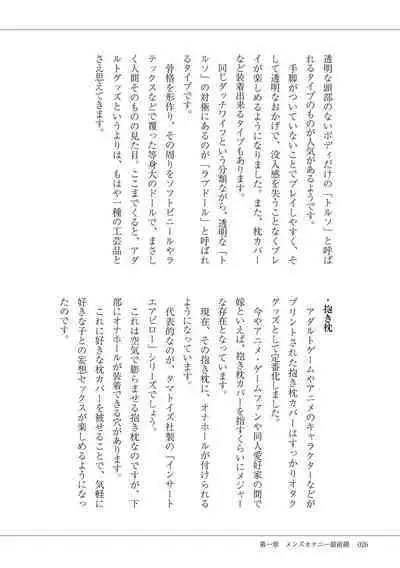 透明な頭部のないボディだけの「トルソ」と呼ば
れるタイプのものが人気があるようです。
手脚がついていないことでプレイしやすく、そ
して透明なおかげで、没入感を失うことなくプレ
イが楽しめるようになりました。また、枕カバー
など装着出来るタイプもあります。
同じダッチワイフという分類ながら、透明な「ト
ルソ」の対極にあるのが「ラブドール」と呼ばれ
るタイプです。
骨格を形作り、その周りをソフトビニールやラ
テックスなどで覆った等身大のドールで、まさし
く人間そのものの見た目。ここまでくると、アダ
ルトグッズというよりは、もはや一種の工芸品と
さえ思えてきます。
・抱き枕
アダルトゲームやアニメのキャラクターなどが
プリントされた抱き枕カバーはすっかりオタク
グッズとして定番化しました。
今やアニメ・ゲームファンや同人愛好家の間で
嫁といえば、抱き枕カバーを指すくらいにメジャー
な存在となっています。
現在、その抱き枕に、オナホールが付けられる
ようになっています。
代表的なのが、タマトイズ社製の「インサート
エアピロー」シリーズでしょう。
これは空気で膨らませる抱き枕なのですが、下
部にオナホールが装着できる穴があります。
これに好きな枕カバーを被せることで、気軽に
好きな子との妄想セックスが楽しめるようになっ
たのです。
第一章 メンズオナニー最前線 026